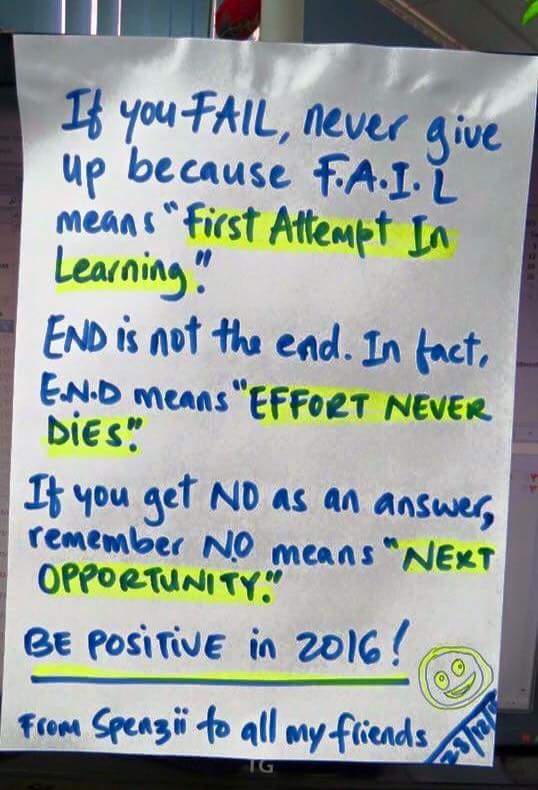 If you FAIL, never give
up because F.A.I.L
means "First Attempt In
Learning."
END is not the end. In fact,
E.N.D means "EFFORT NEVER
DIES."
If you get NO as an answer,
remember N.O means "NEXT
OPPORTUNITY."
BE POSITIVE in 2016!
From Spenzii to all my friends
TG